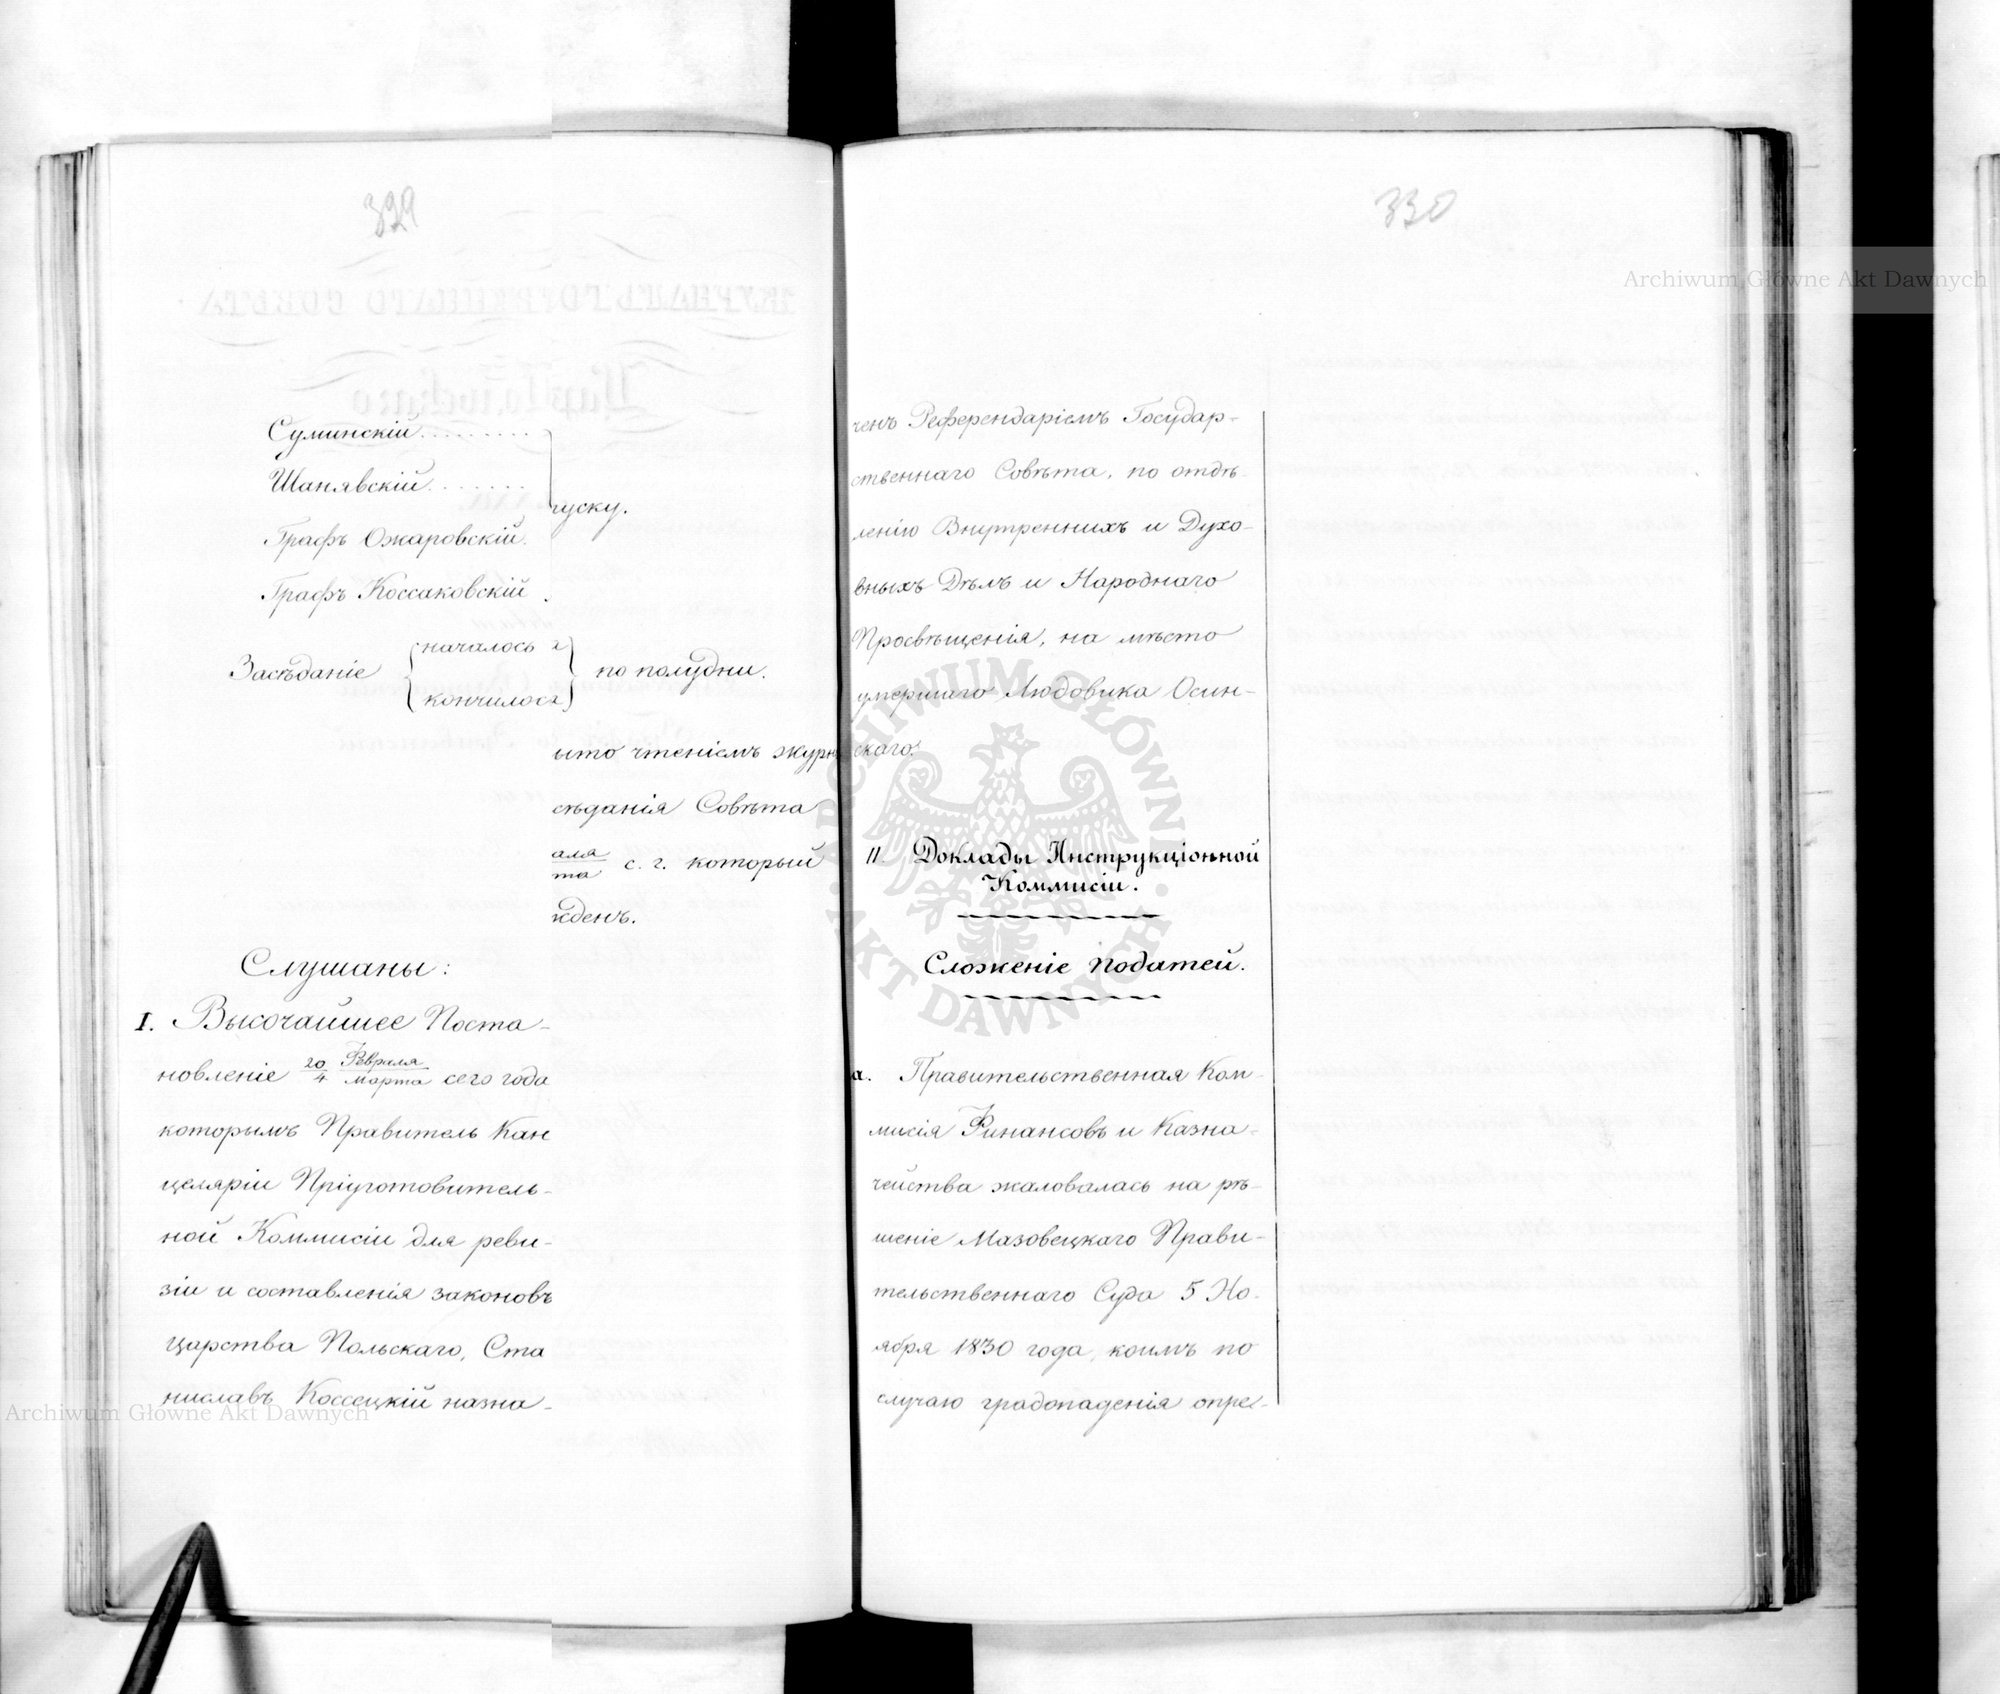 329
Суминскій . . . . . . . . .
Шанявскій . . . . . . .
пуску.
Графъ Ожаровскій.
Графъ Коссаковскій .
Засѣданіе { началось 2 } по полудни.
кончилось
ыто чтеніемъ журн
сѣданія Совѣта
аля
та с. г. который
жденъ.
Слушаны:
I. Высочайшее Поста-
новленіе 20/4 Февраля/марта сего года
которымъ Правитель Кан
целяріи Пріуготовитель-
ной Коммисіи для реви-
зіи и составленія законовъ
Царства Польскаго, Ста
ниславъ Коссецкій назна-
330
ченъ Референдаріемъ Государ-
ственнаго Совѣта, по отдѣ-
ленію Внутреннихъ и Духо-
вныхъ Дѣлъ и Народнаго
Просвѣщенія, на мѣсто
умершаго Людовика Осин-
скаго.
II. Доклады Инструкціонной
Коммисіи.
Сложеніе податей.
а. Правительственная Ком-
мисія Финансовъ и Казна-
чейства жаловалась на рѣ-
шеніе Мазовецкаго Прави-
тельственнаго Суда 5 Но-
ября 1830 года, коимъ по
случаю градопаденія опре-
Archiwum Główne Akt Dawnych
ARCHIWUM GŁÓWNE AKT DAWNYCH
Archiwum Główne Akt Dawnych